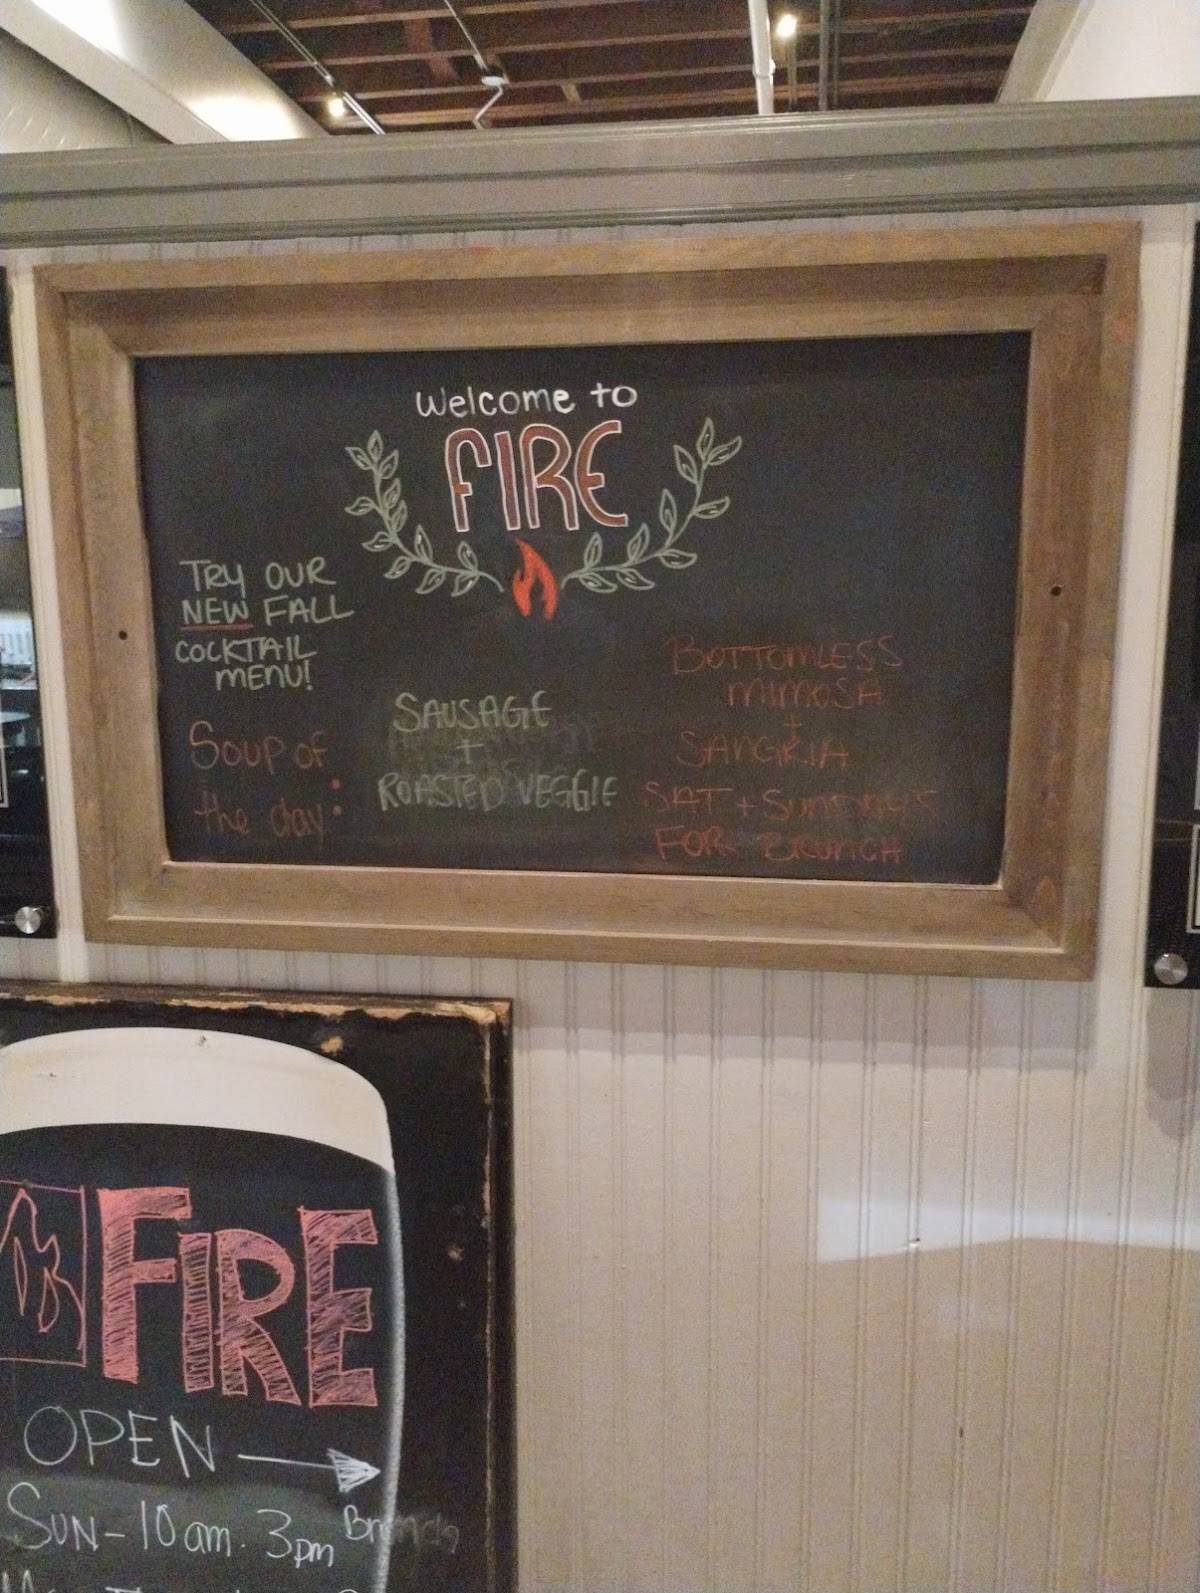 Welcome to
FIRE
TRY OUR
NEW FALL
COCKTAIL
MENU!
Soup of
the day:
SAUSAGE
+
ROASTED VEGGIE
BOTTOMLESS
MIMOSA
+
SANGRIA
SAT + SUNDAYS
FOR BRUNCH
FIRE
OPEN
SUN - 10am - 3pm